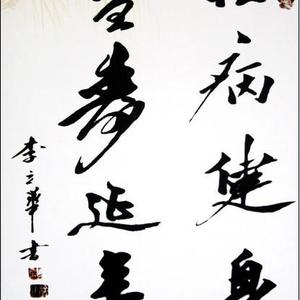 病健身
寿延年
李立華书